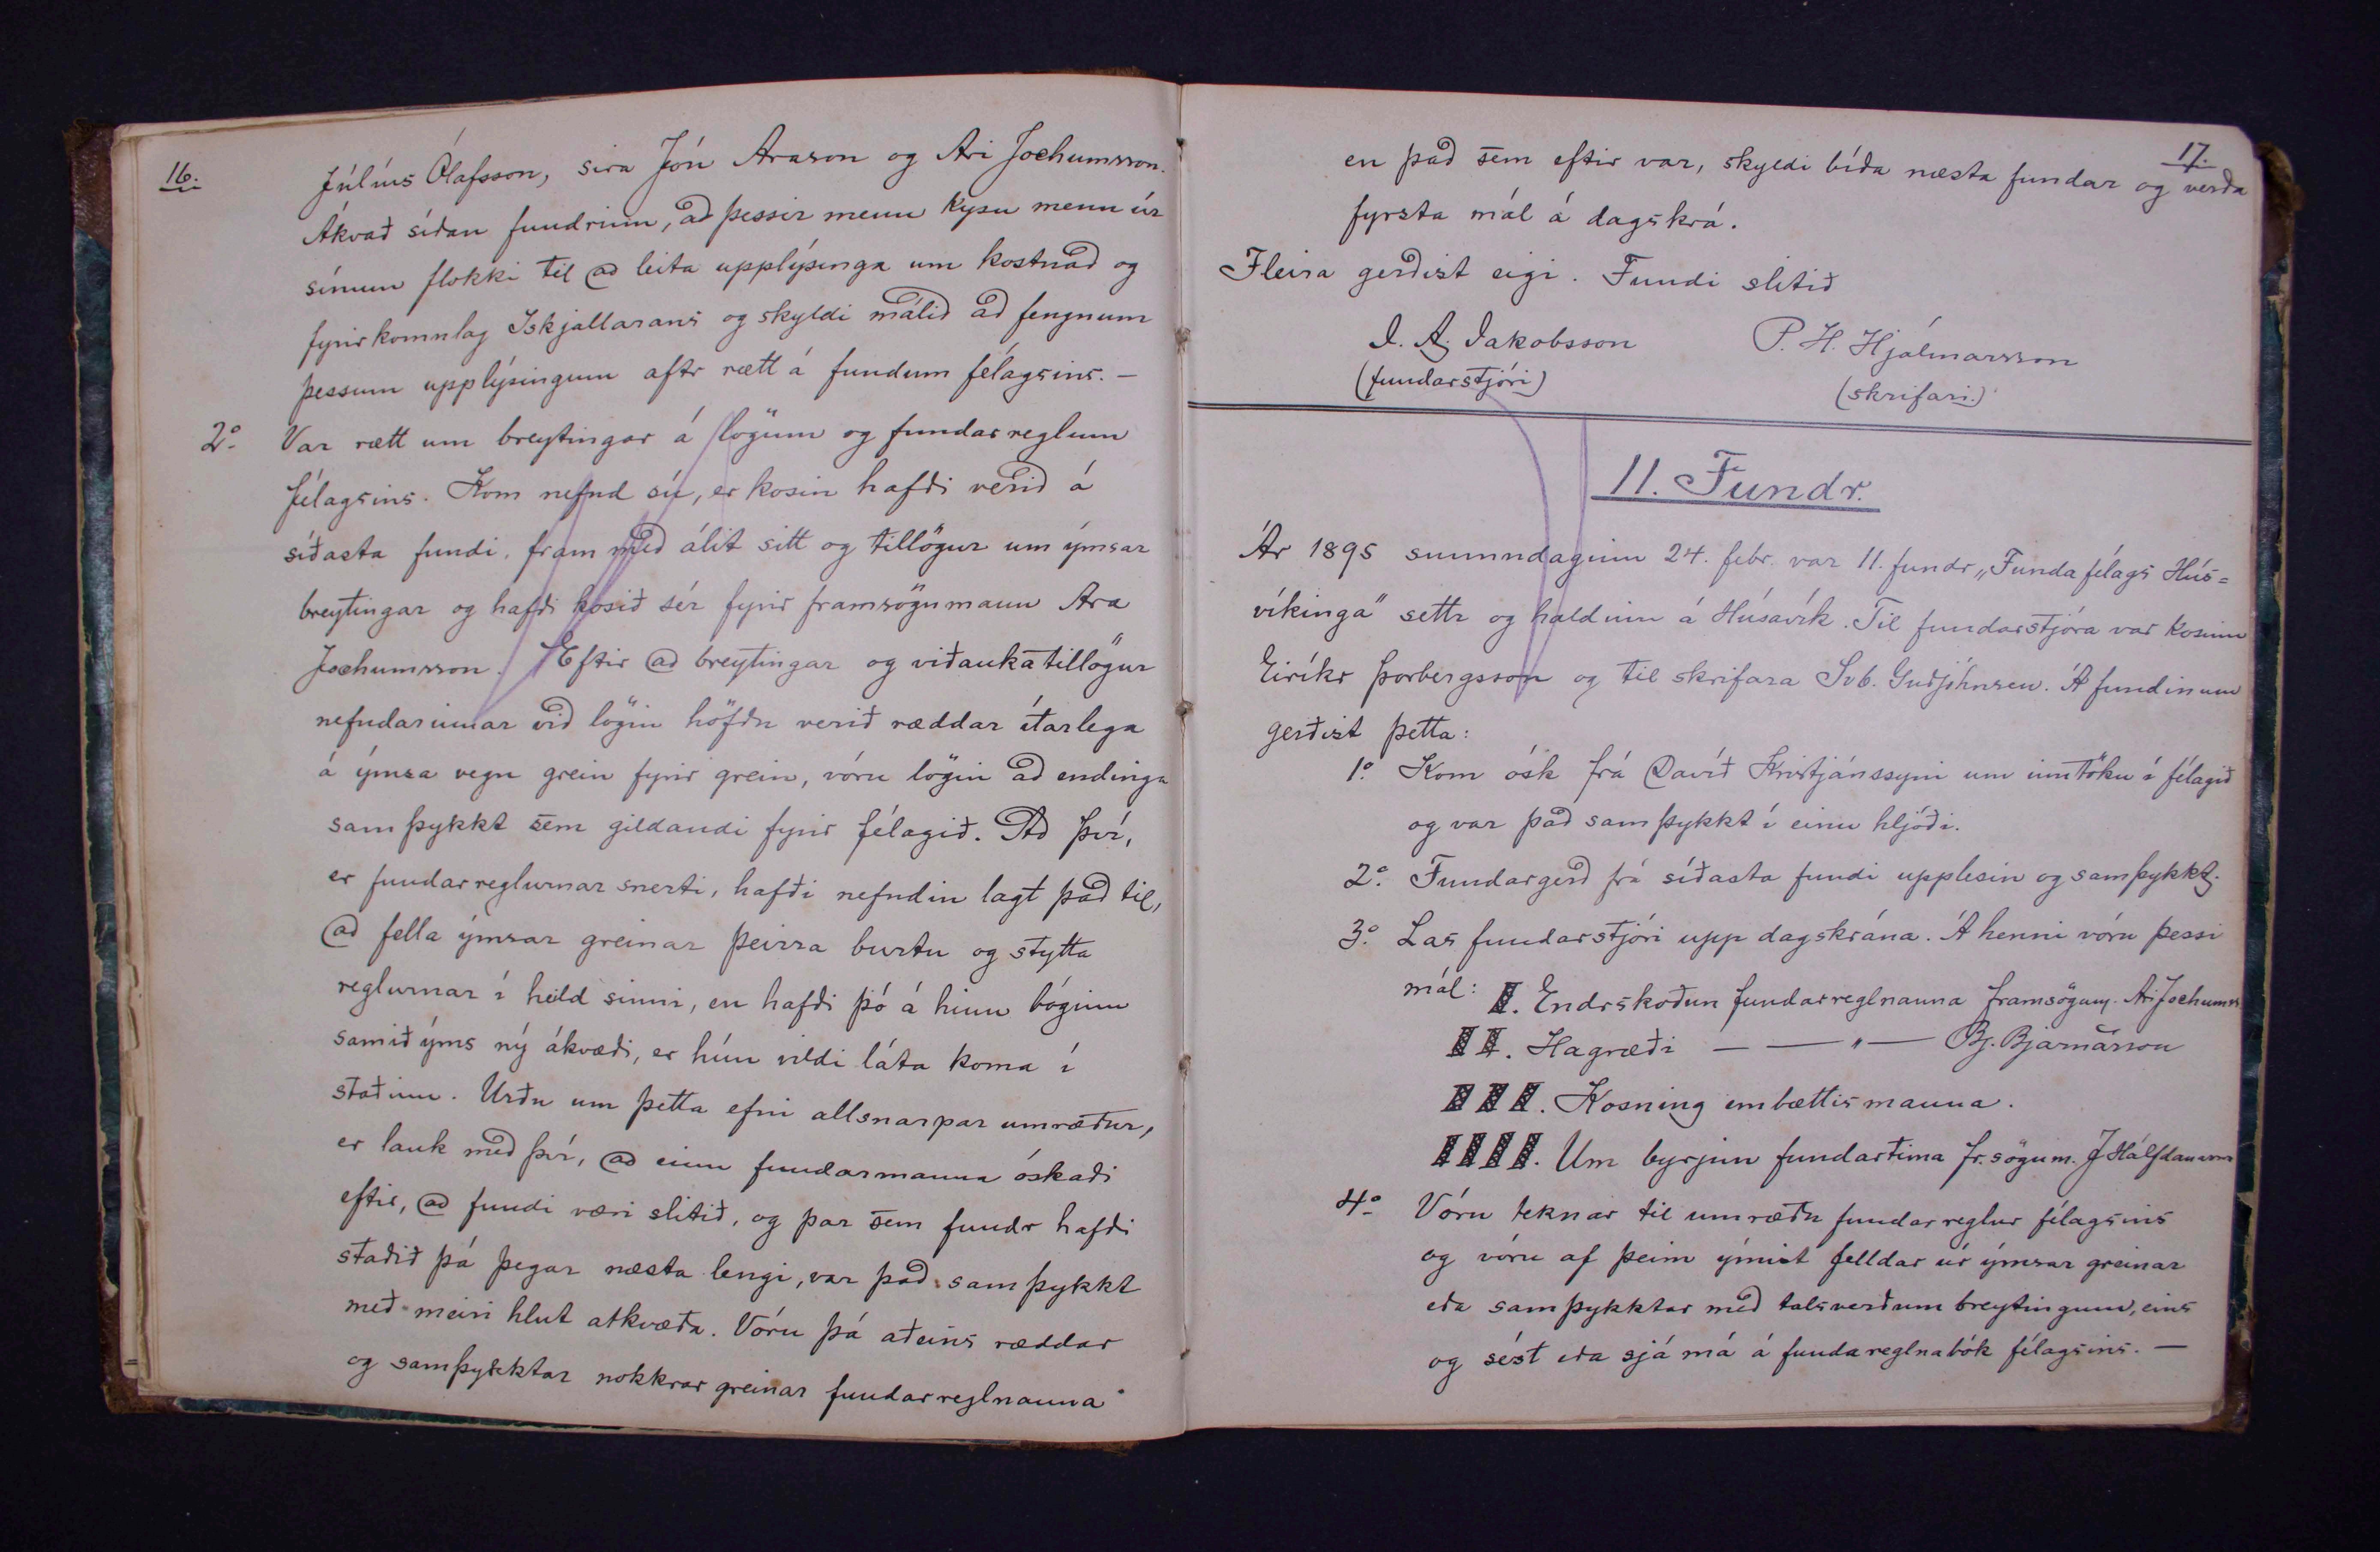 16.
Júlíus Ólafsson, síra Jón Arason og Ari Jochumsson.
Ákvað síðan fundrinn, að þessir menn kysu menn úr
sínum flokki til að leita upplýsinga um kostnað og
fyrirkomulag Ískjallarans og skyldi málið að fengnum
þessum upplýsingum aftr rætt á fundum félagsins. –
2º Var rætt um breytingar á lögum og fundarreglum
félagsins. Kom nefnd sú, er kosin hafði verið á
síðasta fundi, fram með álit sitt og tillögur um ýmsar
breytingar og hafði kosið sér fyrir framsögumann Ara
Jochumsson. Eftir að breytingar og viðaukatillögur
nefndarinnar við lögin höfðu verið ræddar ítarlega
á ýmsa vegu grein fyrir grein, vóru lögin að endingu
samþykkt sem gildandi fyrir félagið. Að því,
er fundarreglurnar snerti, hafði nefndin lagt það til,
að fella ýmsar greinar þeirra burtu og stytta
reglurnar í heild sinni, en hafði þó á hinn bóginn
samið ýms ný ákvæði, er hún vildi láta koma í
staðinn. Urðu um þetta efni allsnarpar umræður,
er lauk með því, að einn fundarmanna óskaði
eftir, að fundi væri slitið, og þar sem fundr hafði
staðið þá þegar næsta lengi, var það samþykkt
með meiri hlut atkvæða. Vóru þá aðeins ræddar
og samþykktar nokkrar greinar fundarreglnanna
17.
en það sem eftir var, skyldi bíða næsta fundar og verða
fyrsta mál á dagskrá.
Fleira gerðist eigi. Fundi slitið
J. A. Jakobsson P. H. Hjálmarsson
(fundarstjóri) (skrifari.)
11. Fundr.
Ár 1895 sunnudaginn 24. febr. var 11. fundr „Fundafélags Hús=
víkinga" settr og haldinn á Húsavík. Til fundarstjóra var kosinn
Eiríkr Þorbergsson og til skrifara Svb. Guðjohnsen. Á fundinum
gerðist þetta:
1º. Kom ósk frá Davíð Kristjánssyni um inntöku í félagið
og var það samþykkt í einu hljóði.
2º. Fundargerð frá síðasta fundi upplesin og samþykkt.
3º. Las fundarstjóri upp dagskrána. Á henni vóru þessi
mál: I. Endrskoðun fundarreglnanna framsögum. Ari Jochumss.
II. Hagræði — — „ — Bj. Bjarnarson
III. Kosning embættismanna.
IIII. Um byrjun fundartíma fr.sögum. J Hálfdanarson
4º Vóru teknar til umræðu fundarreglur félagsins
og vóru af þeim ýmist felldar úr ýmsar greinar
eða samþykktar með talsverðum breytingum, eins
og sést eða sjá má á fundareglnabók félagsins. –